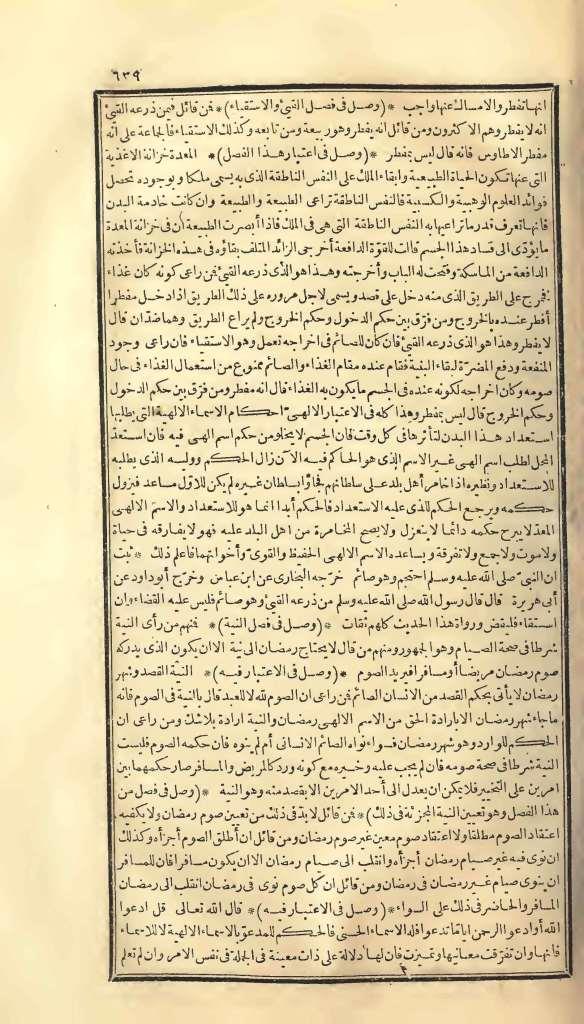 ٦٣٩
انها تفطر والامساك عنها واجب * (وصل فى فصل القىء والاستقياء) * فمن قائل فيمن ذرعه القىء
انه لا يفطر وهم الاكثرون ومن قائل انه يفطر وهو ربيعة ومن تابعه وكذلك الاستقياء فالجماعة على انه
مفطر الا طاوس فانه قال ليس بمفطر * (وصل فى اعتبار هذا الفصل) * المعدة خزانة الاغذية
التى عنها تكون الحياة الطبيعية وابقاء الملك على النفس الناطقة الذى به يسمى ملكا وبوجوده تحصل
فوائد العلوم الوهبية والكسبية فالنفس الناطقة تراعى الطبيعة والطبيعة وان كانت خادمة البدن
فانها تعرف قدر ما تراعيها به النفس الناطقة التى هى فى الملك فاذا أبصرت الطبيعة أن فى خزانة المعدة
ما يؤدّى الى فساد هذا الجسم قالت للقوّة الدافعة أخرجى الزائد المتلف بقاؤه فى هذه الخزانة فأخذته
الدافعة من الماسكة وفتحت له الباب وأخرجته وهذا هو الذى ذرعه القىء فمن راعى كونه كان غذاء
فخرج على الطريق الذى منه دخل على قصد ويسمى لاجل مروره على ذلك الطريق اذا دخل مفطرا
أفطر عنده بالخروج ومن فرّق بين حكم الدخول وحكم الخروج ولم يراع الطريق وهما ضدّان قال
لا يفطر وهذا هو الذى ذرعه القىء فان كان للصائم فى اخراجه تعمل وهو الاستقياء فان راعى وجود
المنفعة ودفع المضرّة لبقاء البنية فقام عنده مقام الغذاء والصائم ممنوع من استعمال الغذاء فى حال
صومه وكان اخراجه لكونه عنده فى الجسم ما يكون به الغذاء قال انه مفطر ومن فرّق بين حكم الدخول
وحكم الخروج قال ليس بمفطر وهذا كله فى الاعتبار الالهىّ احكام الاسماء الالهية التى يطلبها
استعداد هذا البدن لتأثرها فى كل وقت فان الجسم لا يخلو من حكم اسم الهى فيه فان استعدّ
المحل لطلب اسم الهى غير الاسم الذى هو الحاكم فيه الآن زال الحكم ووليه الذى يطلبه
للاستعداد ونظيره اذا خامر أهل بلد على سلطانهم فجاؤا بسلطان غيره لم يكن للاوّل مساعد فيزول
حكمه ويرجع الحكم للذى عليه الاستعداد فالحكم أبدا انما هو للاستعداد والاسم الالهى
المعدّ لا يبرح حكمه دائما لا ينعزل ولا يصح المخامرة من اهل البلد عليه فهو لا يفارقه فى حياة
ولا موت ولا جمع ولا تفرقة ويساعده الاسم الالهى الحفيظ والقوىّ وأخواتهما فاعلم ذلك * ثبت
ان النبىّ صلى الله عليه وسلم احتجم وهو صائم خرّجه البخارى عن ابن عباس وخرّج أبو داود عن
أبى هريرة قال قال رسول الله صلى الله عليه وسلم من ذرعه القىء وهو صائم فليس عليه القضاء وان
استقاء فليقض ورواة هذا الحديث كلهم ثقات * (وصل فى فصل النية) * فمنهم من رأى النية
شرطا فى صحة الصيام وهو الجمهور ومنهم من قال لا يحتاج رمضان الى نية الا ان يكون الذى يدركه
صوم رمضان مريضا أو مسافرا فيريد الصوم * (وصل فى الاعتبار فيه) * النيّة القصد وشهر
رمضان لا يأتى بحكم القصد من الانسان الصائم فمن راعى ان الصوم لله لا للعبد قال بالنية فى الصوم فانه
ما جاء شهر رمضان الا بارادة الحق من الاسم الالهى رمضان والنية ارادة بلا شك ومن راعى ان
الحكم للوارد وهو شهر رمضان فسواء نواه الصائم الانسانى أم لم ينوه فان حكمه الصوم فليست
النية شرطا فى صحة صومه فان لم يجب عليه وخيره مع كونه ورد كالمريض والمسافر صار حكمهما بين
امرين على التخيير فلا يمكن ان يعدل الى أحد الامرين الا بقصد منه وهو النية * (وصل فى فصل من
هذا الفصل وهو تعيين النية المجزئة فى ذلك) * فمن قائل لا بدّ فى ذلك من تعيين صوم رمضان ولا يكفيه
اعتقاد الصوم مطلقا ولا اعتقاد صوم معين غير صوم رمضان ومن قائل ان أطلق الصوم أجزأه وكذلك
ان نوى فيه غير صيام رمضان أجزأه وانقلب الى صيام رمضان الا ان يكون مسافرا فان للمسافر
ان ينوى صيام غير رمضان فى رمضان ومن قائل ان كل صوم نوى فى رمضان انقلب الى رمضان
المسافر والحاضر فى ذلك على السواء * (وصل فى الاعتبار فيه) * قال الله تعالى قل ادعوا
الله أو ادعوا الرحمن اياما تدعوا فله الاسماء الحسنى فالحكم للمدعوّ بالاسماء الالهية لا للاسماء
فانها وان تفرّقت معانيها وتميزت فان لها دلالة على ذات معينة فى الجملة فى نفس الامر وان لم تعلم